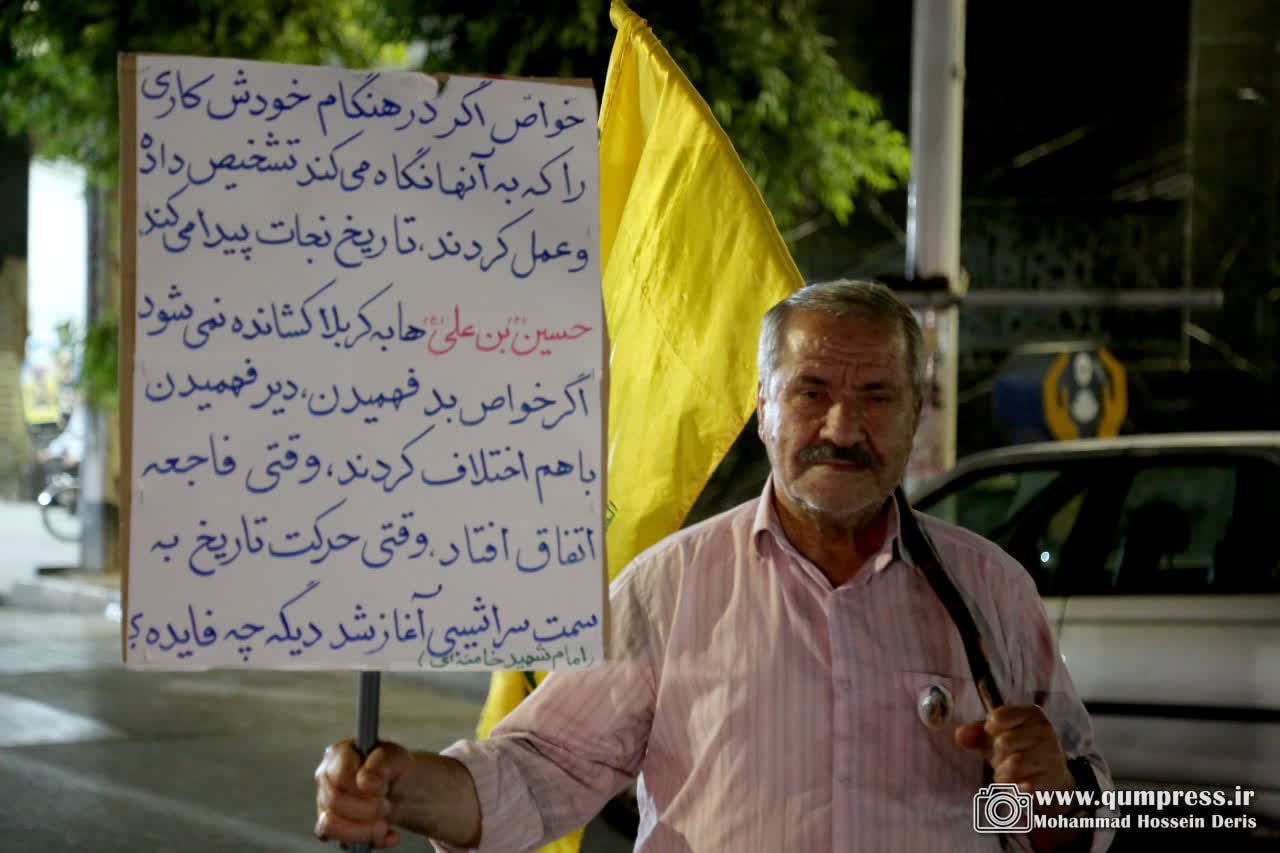 خواصّ اگر در هنگام خودش کاری
را که به آنها نگاه می‌کند تشخیص داده
و عمل کردند، تاریخ نجات پیدا می‌کند
حسین بن علی ها به کربلا کشانده نمی شود
اگر خواص بد فهمیدن، دیر فهمیدن
باهم اختلاف کردند، وقتی فاجعه
اتفاق افتاد، وقتی حرکت تاریخ به
سمت سراشیبی آغاز شد دیگه چه فایده؟
(امام شهید خامنه‌ای)
www.qumpress.ir
Mohammad Hossein Deris